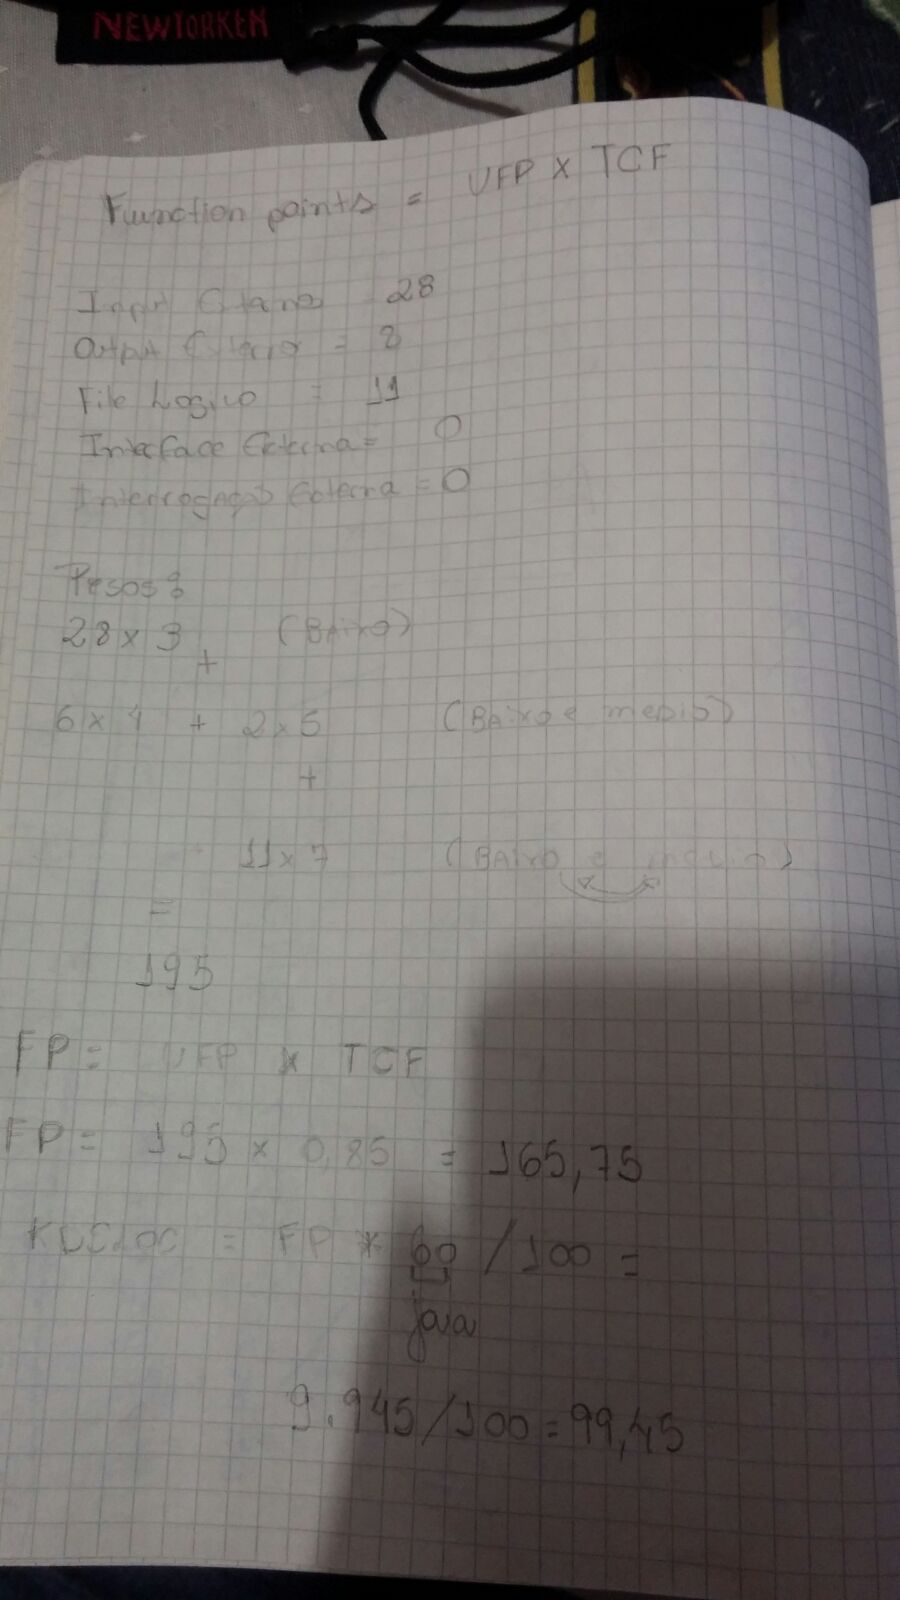 NEWYORKER
Function points = UFP x TCF
Input Externo 28
Output Externo = 8
File Logico = 11
Interface Externa = 0
Interrogação Externa = 0
Pesos:
28 x 3 (BAixo)
+
6 x 4 + 2 x 5 (BAixo e medio)
+
11 x 7 (BAixo e medio)
=
195
FP = UFP x TCF
FP = 195 x 0,85 = 165,75
= FP * 60 / 100 =
java
9.945/100 = 99,45